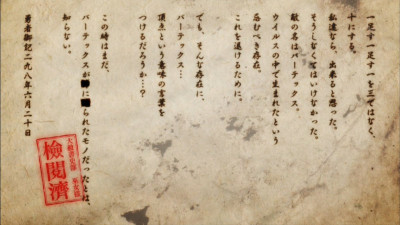 一足す一足す一を三ではなく、
十にする。
私達なら、出来ると思った。
そうしなくてはいけなかった。
敵の名はバーテックス。
ウイルスの中で生まれたという
忌むべき存在。
これを退けるために。
でも、そんな存在に、
バーテックス…
頂点という意味の言葉を
つけるだろうか…?
この時はまだ、
バーテックスが■に■られたモノだったとは、
知らない。
勇者御記二九八年六月二十日
檢閲濟